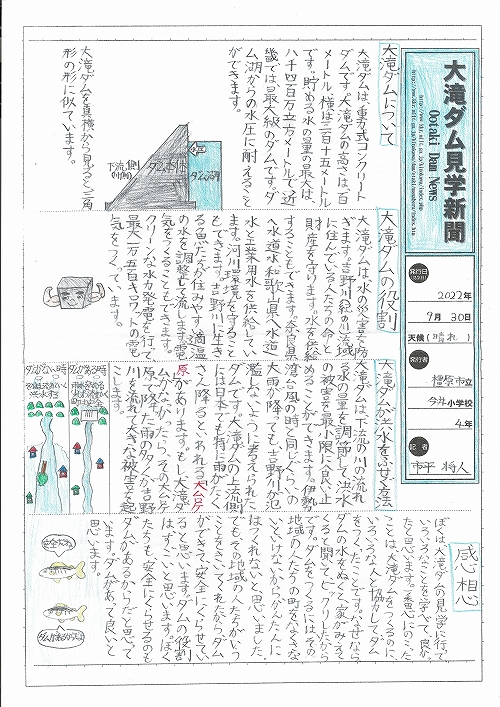 大滝ダム見学新聞
Ootaki Dam News
発行日
2022年
9月30日
天候(晴れ)
発行者
橿原市立
今井小学校
4年
記者
市平 将人
大滝ダムについて
大滝ダムは、重力式コンクリート
ダムです。大滝ダムの高さは、百
メートル、横は三百十五メートル
です。貯める水の量の最大は、
八千四百万立方メートルで、近
畿では最大級のダムです。ダ
ム湖からの水圧に耐えること
ができます。
ダム湖側
ダム本体
下流側
(川側)
大滝ダムを真横から見ると三角
形の形に似ています。
大滝ダムの役割
大滝ダムは、水の災害を防
ぎます。吉野川(紀の川)流域
に住んでいる人たちの命と
財産を守ります。水を供給
することもできます。奈良県
へ水道水、和歌山県へ水道
水と工業用水を供給してい
ます。河川環境を守ること
もできます。吉野川に生き
る魚たちが住みやすい適温
の水を調整して流します。電
気をつくることもできます。
クリーンな水力発電を行って、
最大一万五百キロワットの電
気をつくっています。
大滝ダムが洪水をふせぐ方法
大滝ダムは、下流の川の流れ
る水の量を調節して、洪水
の被害を最小限に食い止
めることができます。伊勢
湾台風の時と同じぐらいの
大雨が降っても吉野川が氾
濫しないように考えられた
ダムです。大滝ダムの上流側
には日本でも特に雨がたく
さん降るといわれる大台ケ
原があります。もし大滝ダ
ムがなかったら、その大台ケ
原に降った雨の多くが吉野
川を流れて大きな被害を起
こします。
ダムがある時
ダムがない時
感想
ぼくは大滝ダムの見学に行って
いろいろなことを学べて、良かっ
たと思います。一番心にのこった
ことは、大滝ダムをつくるのに、
いろいろな人と協力してダム
をつくったことです。なぜなら
ダムの水をぬくと家がみえて
くると聞いてビックリしたから
です。ダムをつくるにはその
地域の人たちの町をなくさな
いといけないからかんたんに
はつくれないと思いました。
でもその地域の人たちがいう
ことをきいてくれたから、ダム
ができて安全にくらせてい
ると思います。ダムの役割
はすごいと思います。ぼく
たちも安全にくらせるのも
ダムがあるからだと思って
います。ダムがあって良いと
思います。
安全だね
ダムがあるからだよ